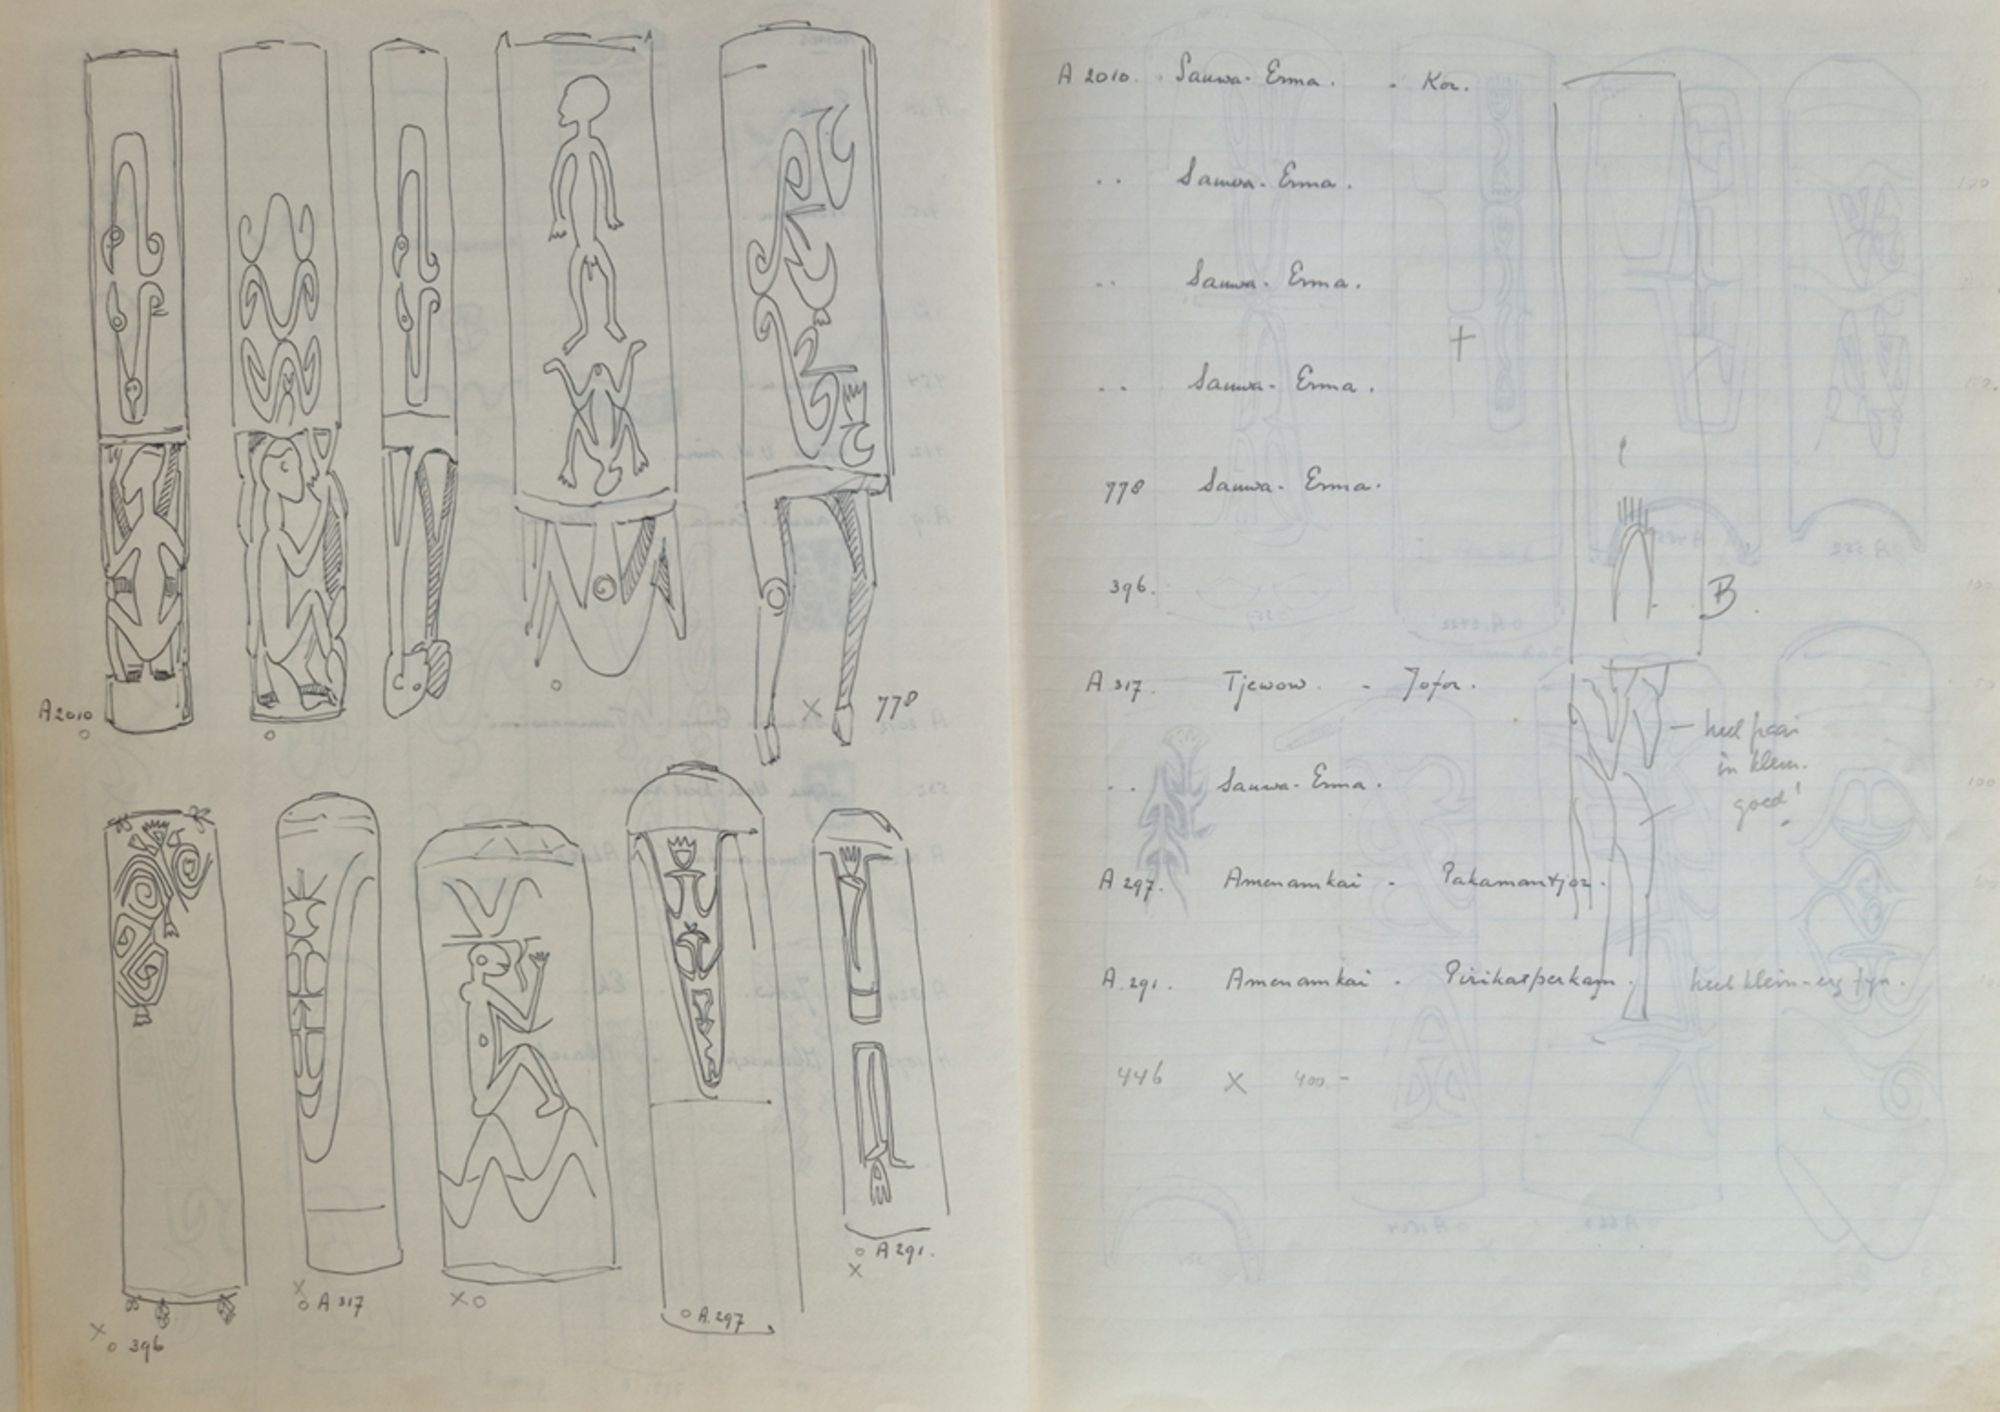 A 2010
778
396
A 317
A 297
A 291.
A 2010. Sauwa-Erma. - Kor.
.. Sauwa-Erma.
.. Sauwa-Erma.
.. Sauwa-Erma.
778 Sauwa-Erma.
396.
B.
A 317. Tjewow. - Jofor.
heel fraai
in klein.
goed!
.. Sauwa-Erma.
A 297. Amenamkai - Pakamantjor.
A. 291. Amenamkai - Pirikatperkam. heel klein - erg fyn.
446 X 400.-